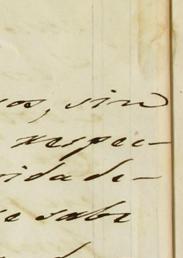 os, sin
respec-
vida de-
e sabe